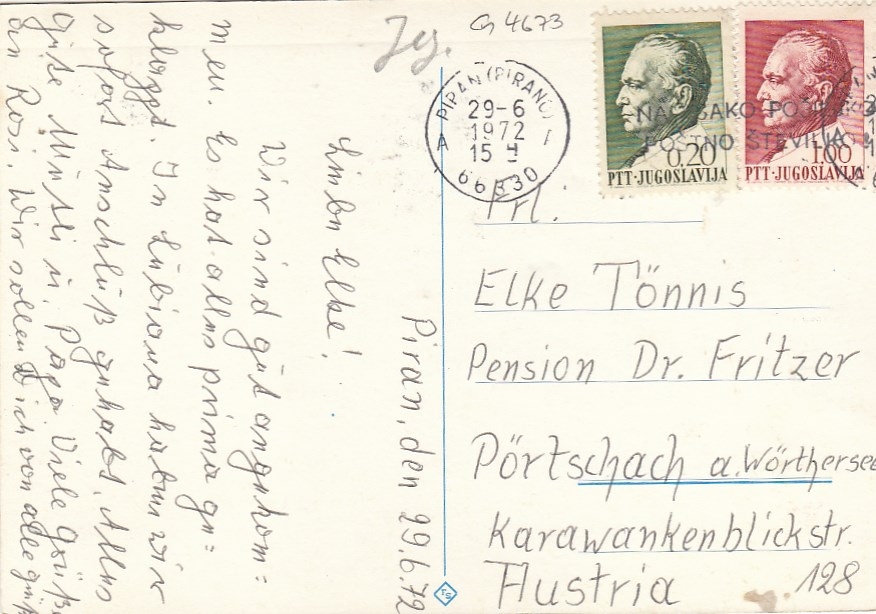 Jg.
G 4673
PIRAN (PIRANO)
29-6
1972
A 15
66330
0,20
PTT·JUGOSLAVIJA
1.00
PTT·JUGOSLAVIJA
NA VSAKO
POŠTNO ŠTEVILKA
Piran, den 29.6.72
Liebe Elke!
Wir sind gut angekom=
men. Es hat alles prima ge=
klappt. In Lubiana haben wir
sofort Anschluß gehabt. Alles
Gute Mutti u. Papa. Viele Grüße
an Rosi. Wir sollen Dich von alle
Frl.
Elke Tönnis
Pension Dr. Fritzer
Pörtschach a. Wörthersee
Karawankenblickstr.
128
Austria